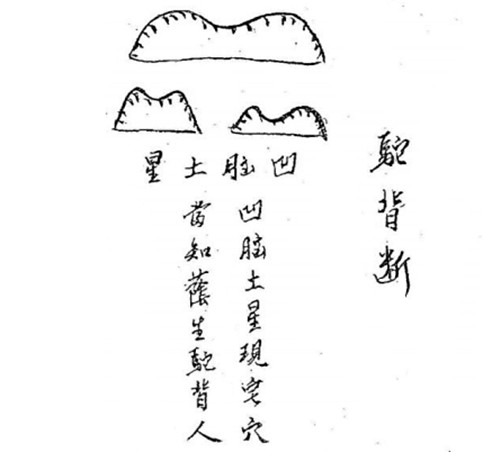 駝背断
凹脑土星
凹脑土星現宅穴
当知蔭生駝背人